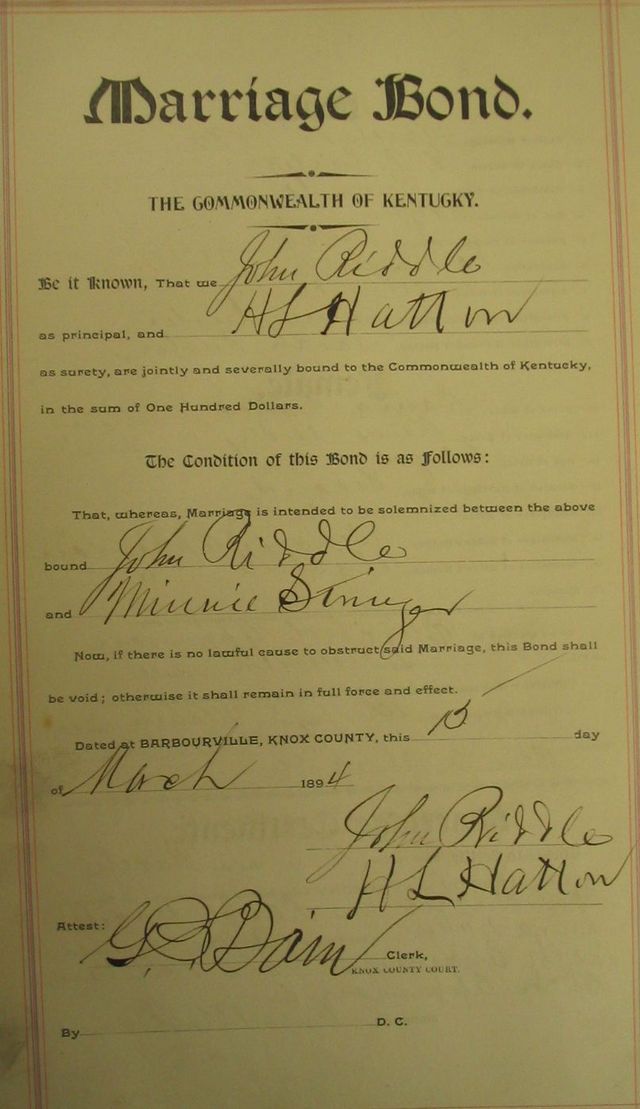 Marriage Bond.
THE COMMONWEALTH OF KENTUCKY.
Be it Known, That we John Riddle
as principal, and H L Hatton
as surety, are jointly and severally bound to the Commonwealth of Kentucky,
in the sum of One Hundred Dollars.
The Condition of this Bond is as Follows:
That, whereas, Marriage is intended to be solemnized between the above
bound John Riddle
and Minnie Stringer
Now, if there is no lawful cause to obstruct said Marriage, this Bond shall
be void; otherwise it shall remain in full force and effect.
Dated at BARBOURVILLE, KNOX COUNTY, this 15 day
of March 1894
John Riddle
H L Hatton
Attest:
Clerk,
KNOX COUNTY COURT.
By D. C.